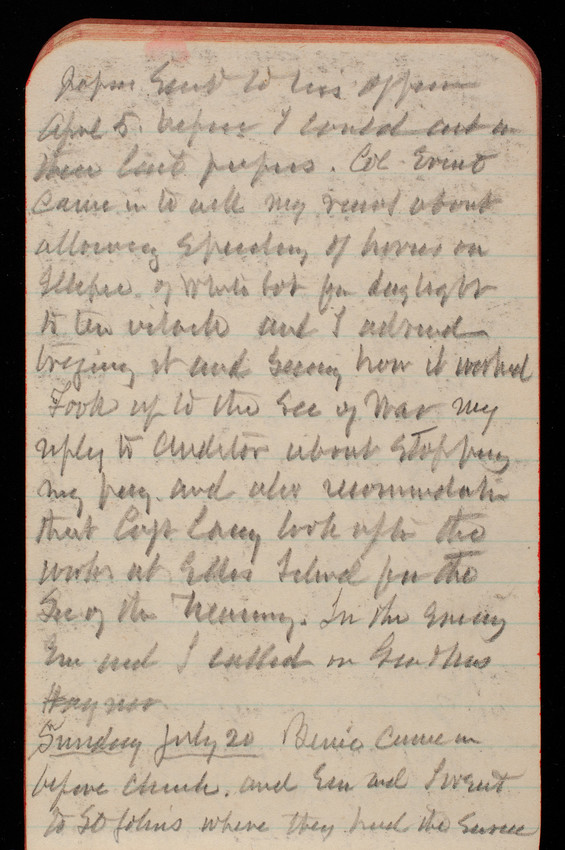 papers sent to his office
April 5. before I could act on
these last papers. Col Ernst
came in to ask my views about
allowing speeding of horses on
Ellipse of White Lot from daylight
to ten oclock and I advised
trying it and seeing how it worked
Took up to the Sec of War my
reply to Auditor about stopping
my pay and also recommendation
that Capt Casey look after the
work at Ellis Island for the
Sec of the Treasury. In the evening
Em and I called on Gen & Mrs
Sunday July 20 Bernie came in
before church. and Em and I went
to St Johns where they had the service